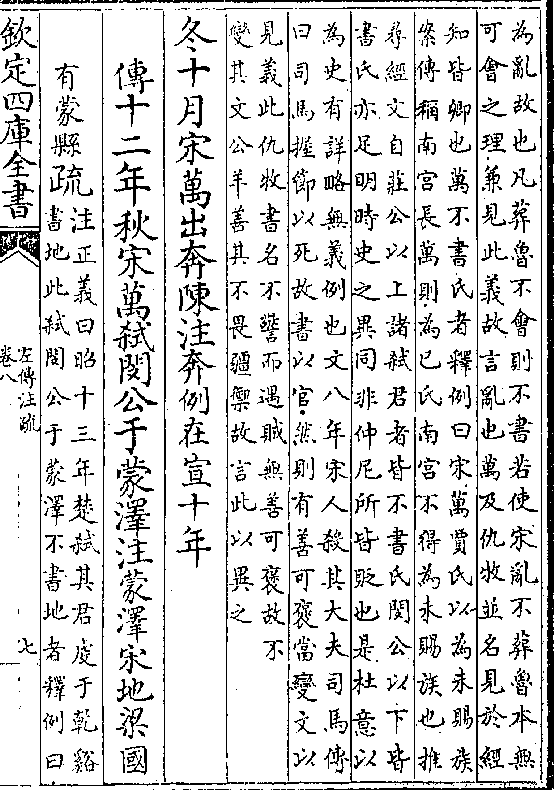 為亂故也凡葬魯不會則不書若使宋亂不葬魯本無
可會之理兼見此義故言亂也萬及仇牧並名見於經
知皆卿也萬不書氏者釋例曰宋萬賈氏以為未賜族
案傳稱南宫長萬則為已氏南宫不得為未賜族也推
尋經文自莊公以上諸弑君者皆不書氏閔公以下皆
書氏亦足明時史之異同非仲尼所皆貶也是杜意以
為史有詳略無義例也文八年宋人殺其大夫司馬傳
曰司馬握節以死故書以官然則有善可褒當變文以
見義此仇牧書名不警而遇賊無善可褒故不
變其文公羊善其不畏疆禦故言此以異之
冬十月宋萬出奔陳注奔例在宣十年
傳十二年秋宋萬弑閔公于蒙澤注蒙澤宋地梁國
有蒙縣疏注正義曰昭十三年楚弑其君虔于乾谿
書地此弑閔公于蒙澤不書地者釋例曰
欽定四庫全書
左傳注疏
卷八
七